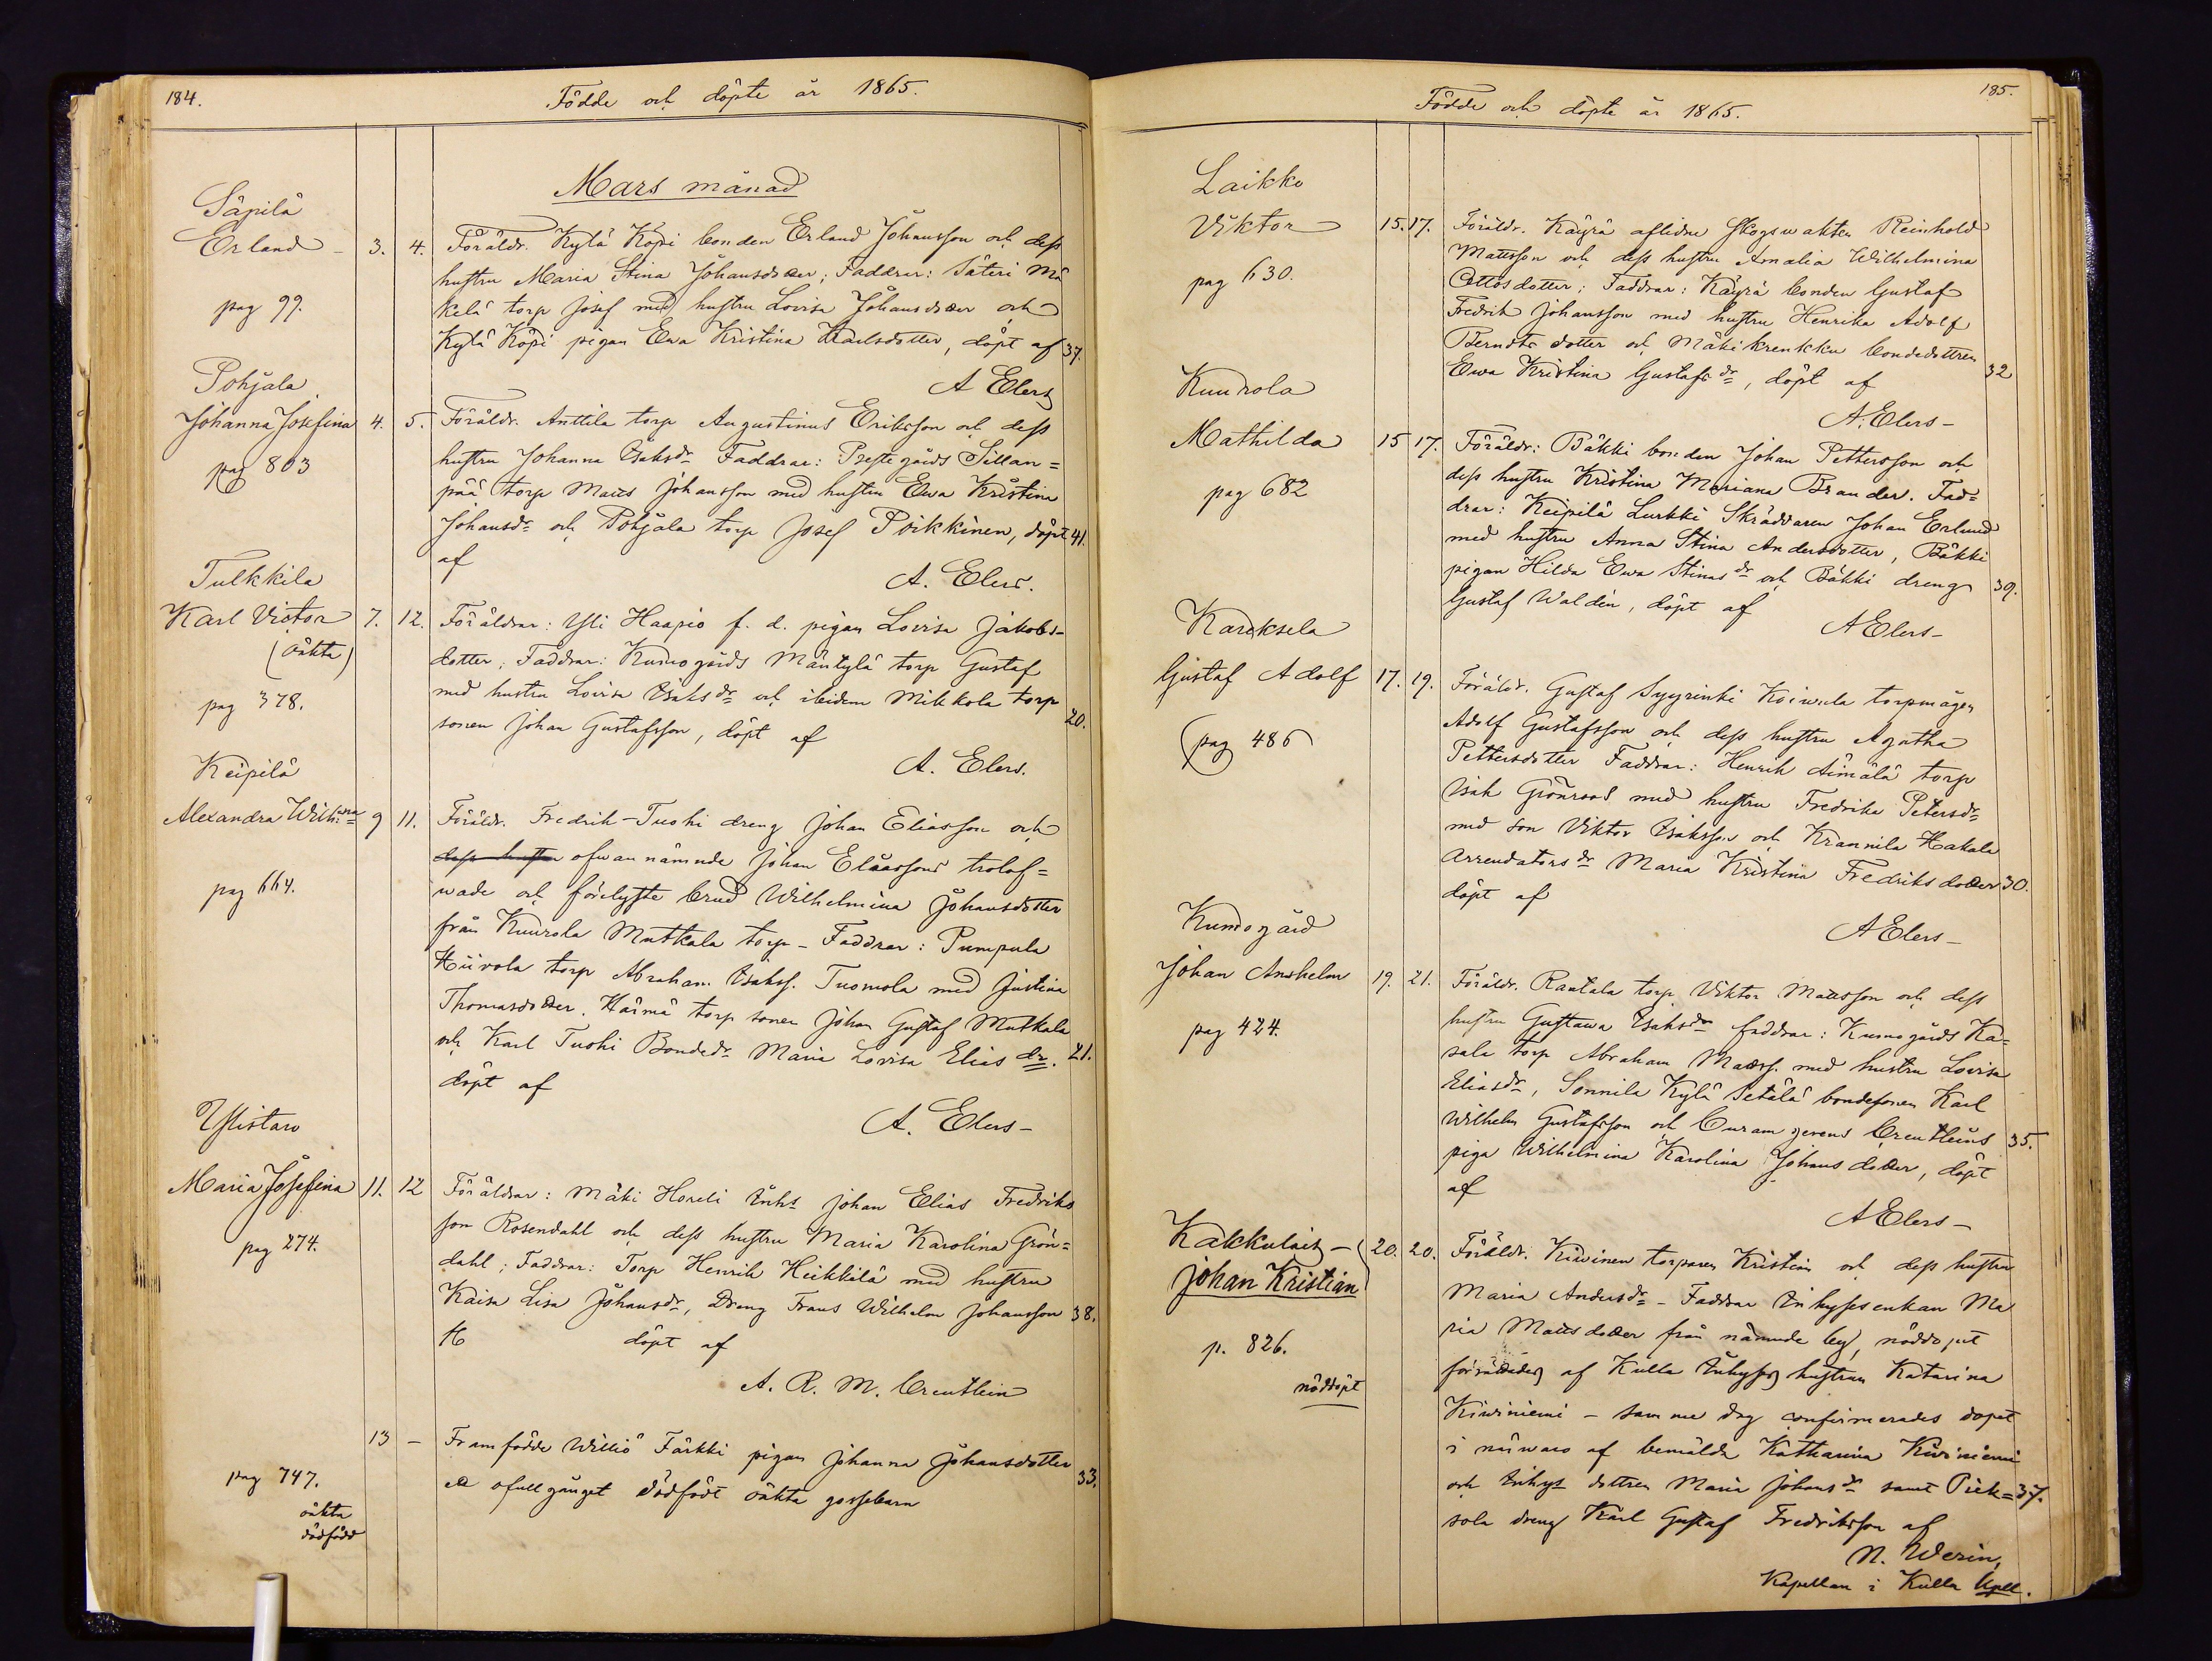 184.
Födde och döpte år 1865.
Mars månad
Säpilä
Erland - 3. 4. Föräldr. Kylä Köpi bonden Erland Johansson och dess
hustru Maria Stina Johansdotter; Faddrar: Säteri Mä
pag 99. kelä torp Josef med hustru Lovisa Johansdotter och
Kylä Köpi pigan Ewa Kristina Karlsdotter, döpt af 37.
A Elers
Pohjala
Johanna Josefina 4. 5. Föräldr. Anttila torp Augustinus Eriksson och dess
pag 803 hustru Johanna Isaksdr Faddrar: Prestegårds Sillan=
pää torp Matts Johansson med hustru Ewa Kristina
Johansdr och Pohjala torp Josef Poikkinen, döpt 41.
af
A. Elers.
Tulkkila
Karl Victor 7. 12. Föräldrar: Yli Haapio f. d. pigan Lovisa Jakobs-
(oäkta) dotter; Faddrar: Kumogårds Mäntylä torp Gustaf
pag 378. med hustru Lovisa Isaksdr och ibidem Mikkola torp
sonen Johan Gustafsson, döpt af 20.
A. Elers.
Keipilä
Alexandra Wilhina 9 11. Föräldr. Fredrik-Tuohi dreng Johan Eliasson och
dess hustru ofwannämnde Johan Eliassons trolof=
pag 664. wade och förelyste brud Wilhelmina Johansdotter
från Kuurola Mutkala torp - Faddrar: Pumpula
Hiivola torp Abraham Isakss. Tuomola med Justina
Thomasdotter. Härmä torp sonen Johan Gustaf Mutkala
och Karl Tuohi Bondedr Maria Lovisa Elias dr. 21.
döpt af
A. Elers-
Ylistaro
Maria Josefina 11. 12 Föräldrar: Mäki Horeli Inhs Johan Elias Fredriks
son Rosendahl och dess hustru Maria Karolina Grön=
pag 274. dahl; Faddrar: Torp Henrik Heikkilä med hustru
Kaisa Lisa Johansdr, Dreng Frans Wilhelm Johansson 38.
H döpt af
A. R. M. Creutlein
13 - Framfödde Williö Färkki pigan Johanna Johansdotter
pag 747. ett ofullgånget dödfödt oäkta gossebarn 33.
oäkta
dödfödd
185.
Födde och döpte år 1865.
Laikko
Viktor 15. 17. Föräldr. Käyrä aflidne Skogswakten Reinhold
Mattsson och dess hustru Amalia Wilhelmina
pag 630. Ottosdotter; Faddrar: Käyrä bonden Gustaf
Fredrik Johansson med hustru Henrika Adolf
Berndts dotter och Mäkikrenkku bondedottren
Ewa Kristina Gustafs dr, döpt af 32
A. Elers-
Kuurola
Mathilda 15 17. Föräldr: Bäkki bonden Johan Pettersson och
dess hustru Kristina Mariana Brander. Fad=
pag 682 drar: Keipilä Lurkki Skräddaren Johan Erlund
med hustru Anna Stina Andersdotter, Bäkki
pigan Hilda Ewa Stinas dr och Bäkki dreng 39.
Gustaf Waldén, döpt af
A Elers-
Kareksela
Gustaf Adolf 17. 19. Föräldr. Gustaf Syyrinki Koiwula torpmågen
Adolf Gustafsson och dess hustru Agatha
pag 486 Pettersdotter Faddrar: Henrik Äimälä torp
Isak Grönroos med hustru Fredrika Petersdr
med son Viktor Isaksson och Krannila Hakala
Arrendators dr Maria Kristina Fredriks dotter 30.
döpt af
A Elers-
Kumogård
Johan Anshelm 19. 21. Föräldr. Rantala torp. Viktor Mattsson och dess
hustru Gustawa Isaksdr faddrar: Kumogårds Ka=
pag 424. sala torp Abraham Mattss. med hustru Lovisa
Eliasdr, Sonnila Kylä Setälä bondesonen Karl
Wilhelm Gustafsson och Curam gerens Creutleins 35.
piga Wilhelmina Karolina Johans dotter, döpt
af
A Elers-
Kakkulais - 20. 20. Föräldr. Kiwinen torparen Kristian och dess hustru
Johan Kristian Maria Andersdr - Faddrar Inhysesenkan Ma
ria Matts dotter från nämnde by, nöddopet
p. 826. förrättades af Kulla Inhyses hustrun Katarina
nöddöpt Kiwiniemi - samme dag confirmerades dopet
i närwaro af bemälda Katharina Kiwiniemi
och Inhys dottren Maria Johansdr samt Piek= 37.
sola dreng Karl Gustaf Fredriksson af
N. Werin,
Kapellan i Kulla Kpll.